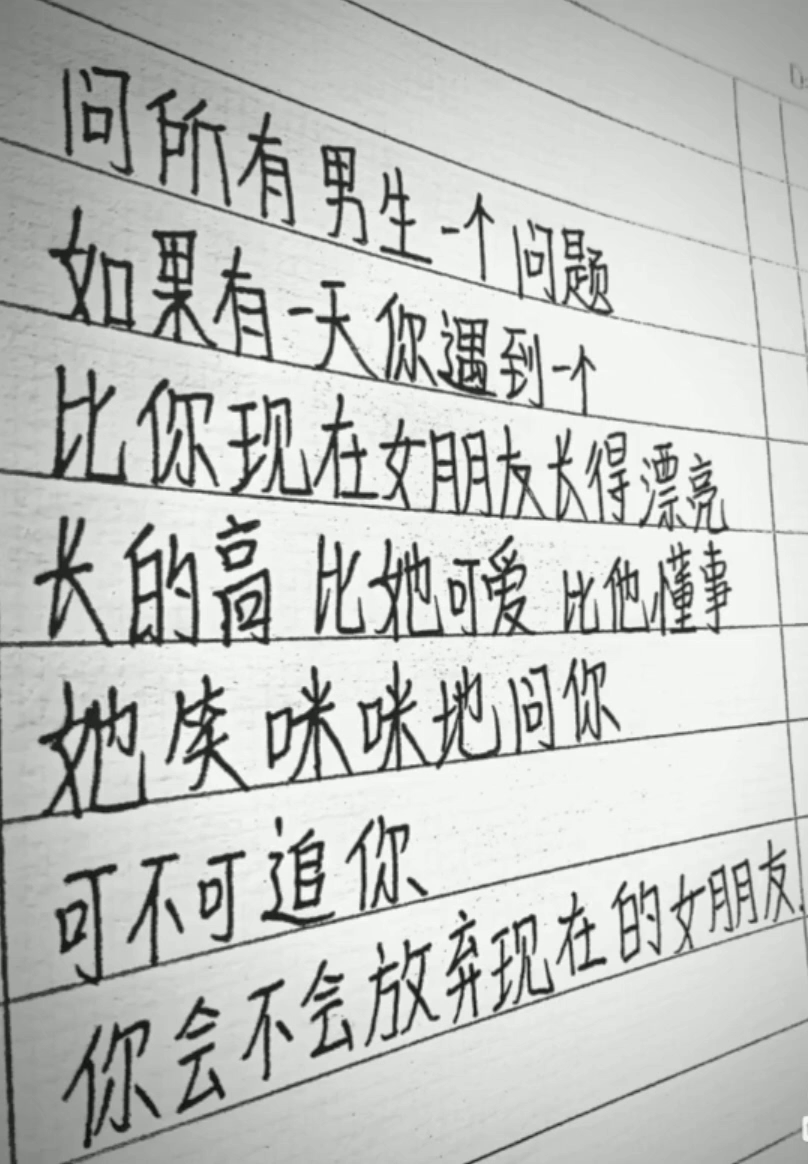 问所有男生一个问题
如果有一天你遇到一个
比你现在女朋友长得漂亮
长的高 比她可爱 比他懂事
她笑咪咪地问你
可不可追你
你会不会放弃现在的女朋友